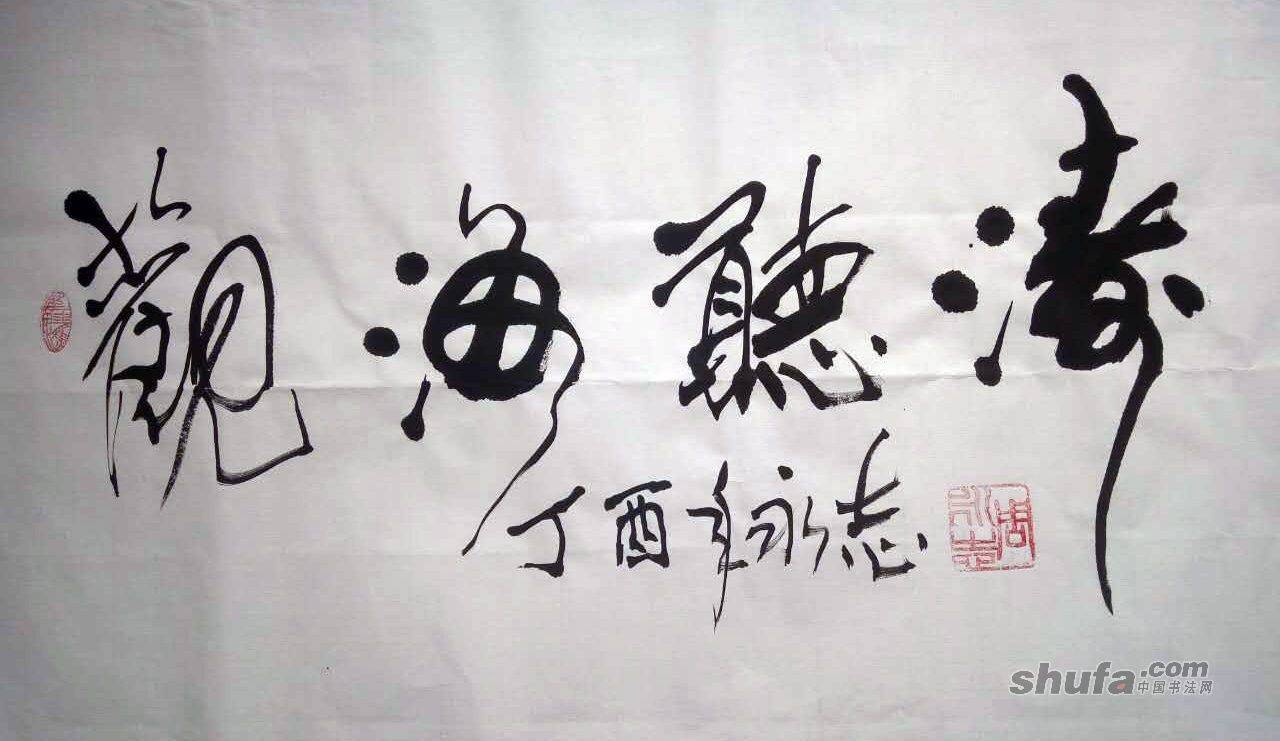 觀海聽濤
丁酉年永志
周永志
shufa.com
中国书法网